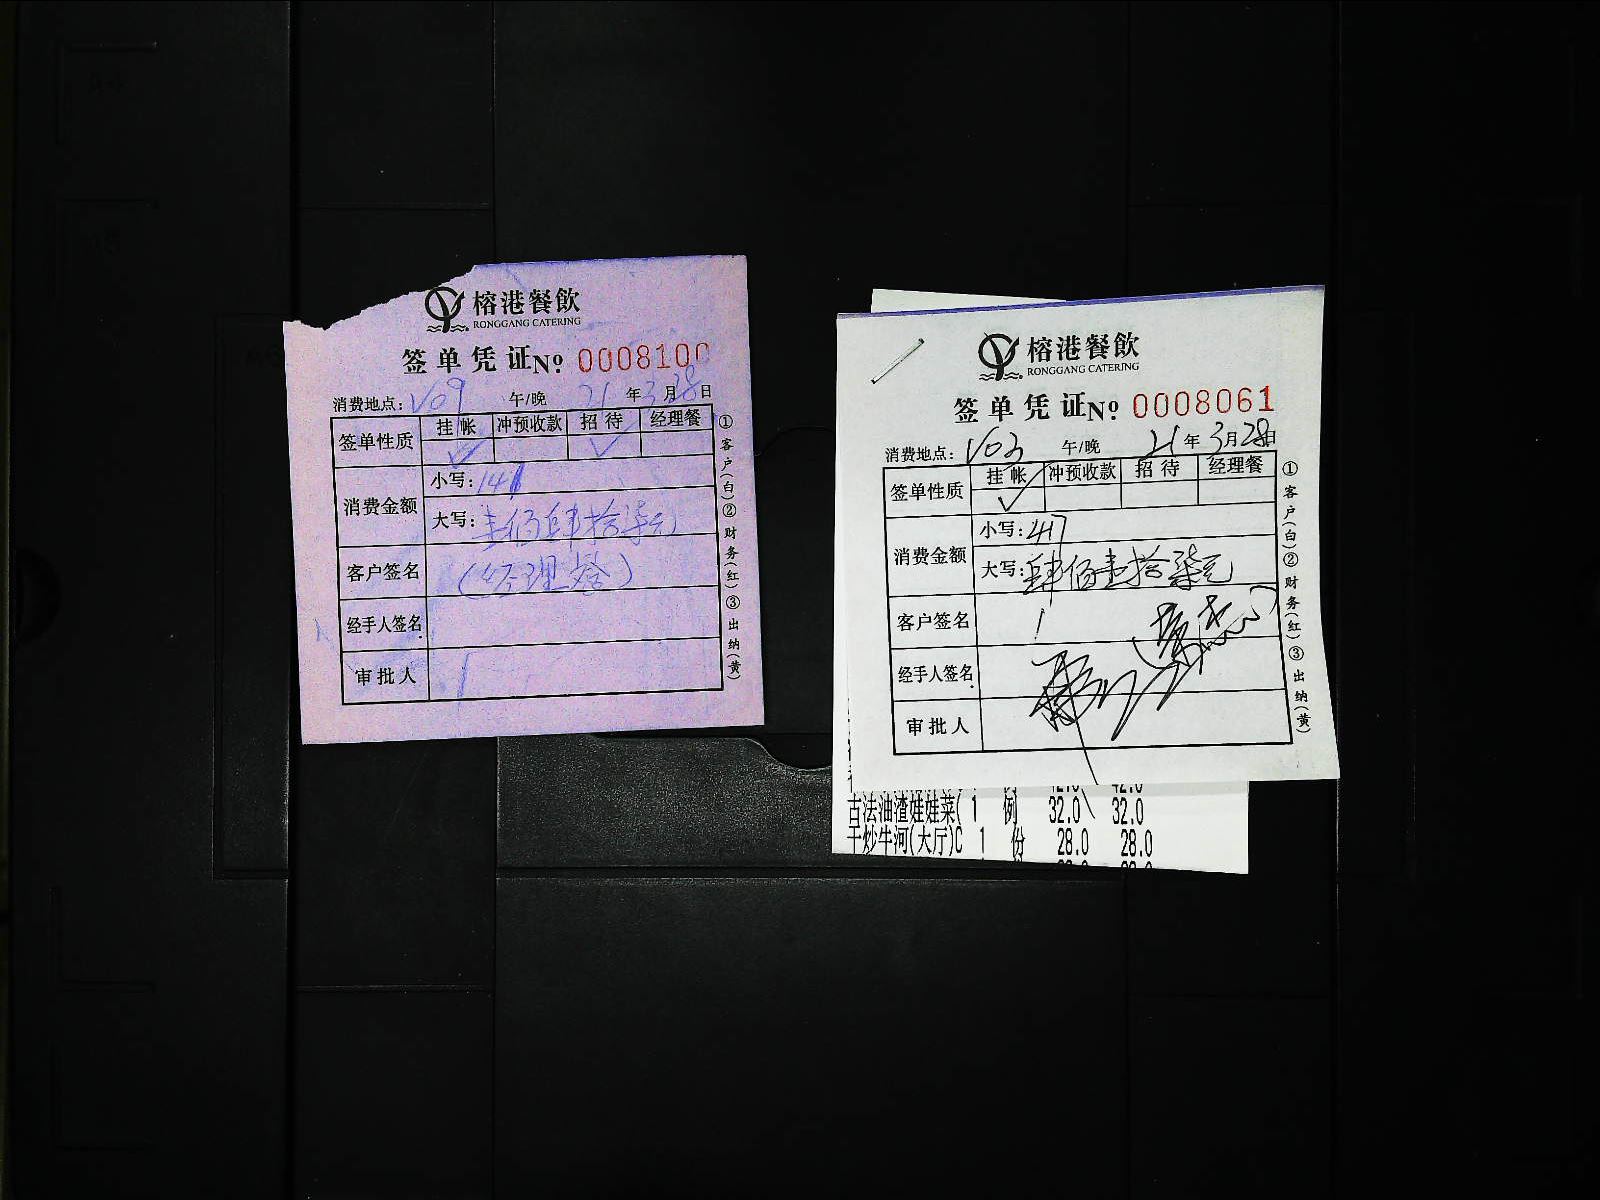 榕港餐飲
RONGGANG CATERING
签单凭证 Nº 0008100
消费地点: V09 午/晚 21年3月28日
签单性质 挂帐 冲预收款 招待 经理餐
✓ ✓
消费金额 小写: 147
大写: 壹佰肆拾柒元
客户签名 (经理餐)
经手人签名
审批人
①客户(白)②财务(红)③出纳(黄)
榕港餐飲
RONGGANG CATERING
签单凭证 Nº 0008061
消费地点: V03 午/晚 21年3月28日
签单性质 挂帐 冲预收款 招待 经理餐
✓
消费金额 小写: 417
大写: 肆佰壹拾柒元
客户签名
经手人签名
审批人
①客户(白)②财务(红)③出纳(黄)
例 42.0 42.0
古法油渣娃娃菜( 1 例 32.0 32.0
干炒牛河(大厅)C 1 份 28.0 28.0